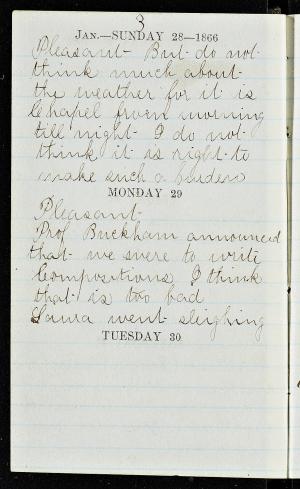 3
JAN.—SUNDAY 28—1866
Pleasant- But do not
think much about
the weather for it is
Chapel from morning
till night I do not
think it is right to
make such a burden
MONDAY 29
Pleasant-
Prof Buckham announced
that we were to write
Compositions I think
that is too bad
Laura went sleighing
TUESDAY 30